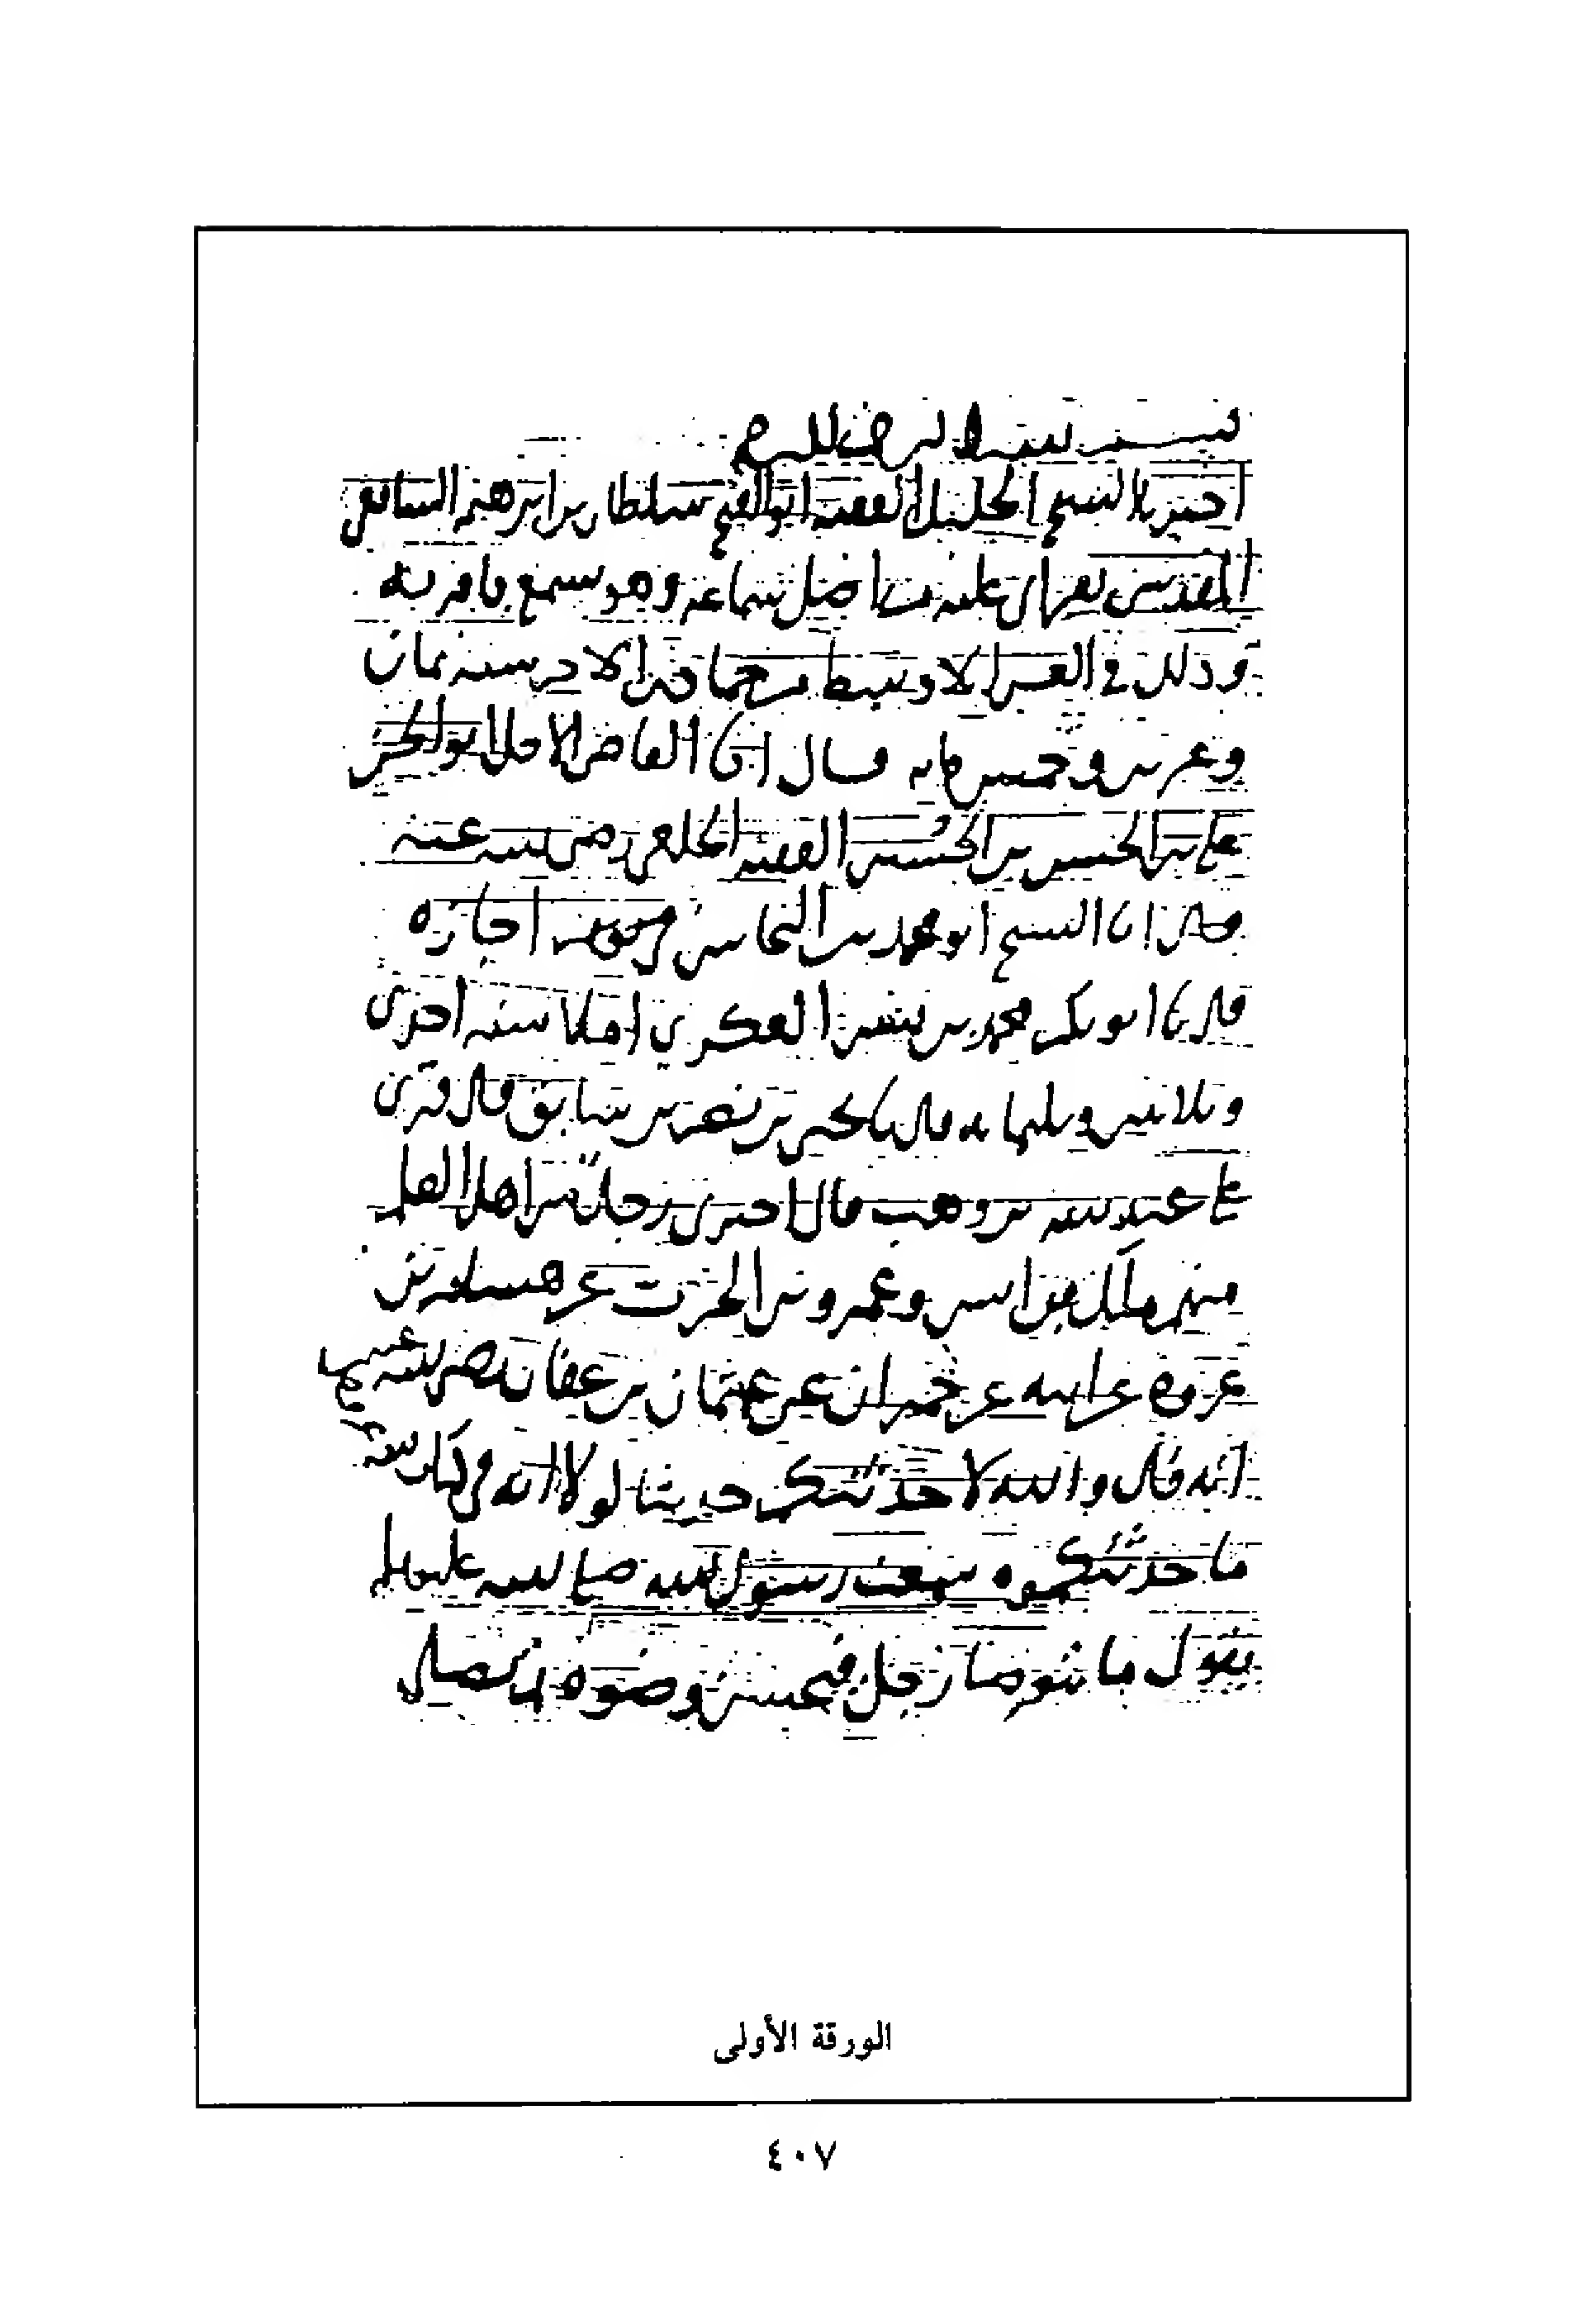 بسم الله الرحمن الرحيم
اخبرنا الشيخ الجليل الفقيه ابو الفتح سلطان بن ابرهيم الشافعي
المقدسي بقراتي عليه من اصل سماعه وهو يسمع فاقر به
وذلك في العشر الاوسط من جمادى الاخر سنه ثمان
وعشرين وخمس مايه قال انا القاضي الاجل ابو الحسن
علي بن الحسن بن الحسين الفقيه الخلعي رضي الله عنه
قال انا الشيخ ابو محمد بن النحاس اجازه
قال نا ابو بكر محمد بن بشر العكري املا سنه احدى
وثلاثين وثلثمايه قال نا بحر بن نصر بن سابق قال قرئ
على عبد الله بن وهب قال اخبرني رجال من اهل العلم
منهم ملك بن انس وعمرو بن الحرث عن هشام بن
عروه عن ابيه عن حمران عن عثمان بن عفان رضي الله عنهما
انه قال والله لاحدثنكم حديثا لولا انه في كتاب الله
ما حدثتكموه سمعت رسول الله صلى الله عليه وسلم
يقول ما توضا رجل فيحسن وضوه ثم يصلي
الورقة الأولى
٤٠٧